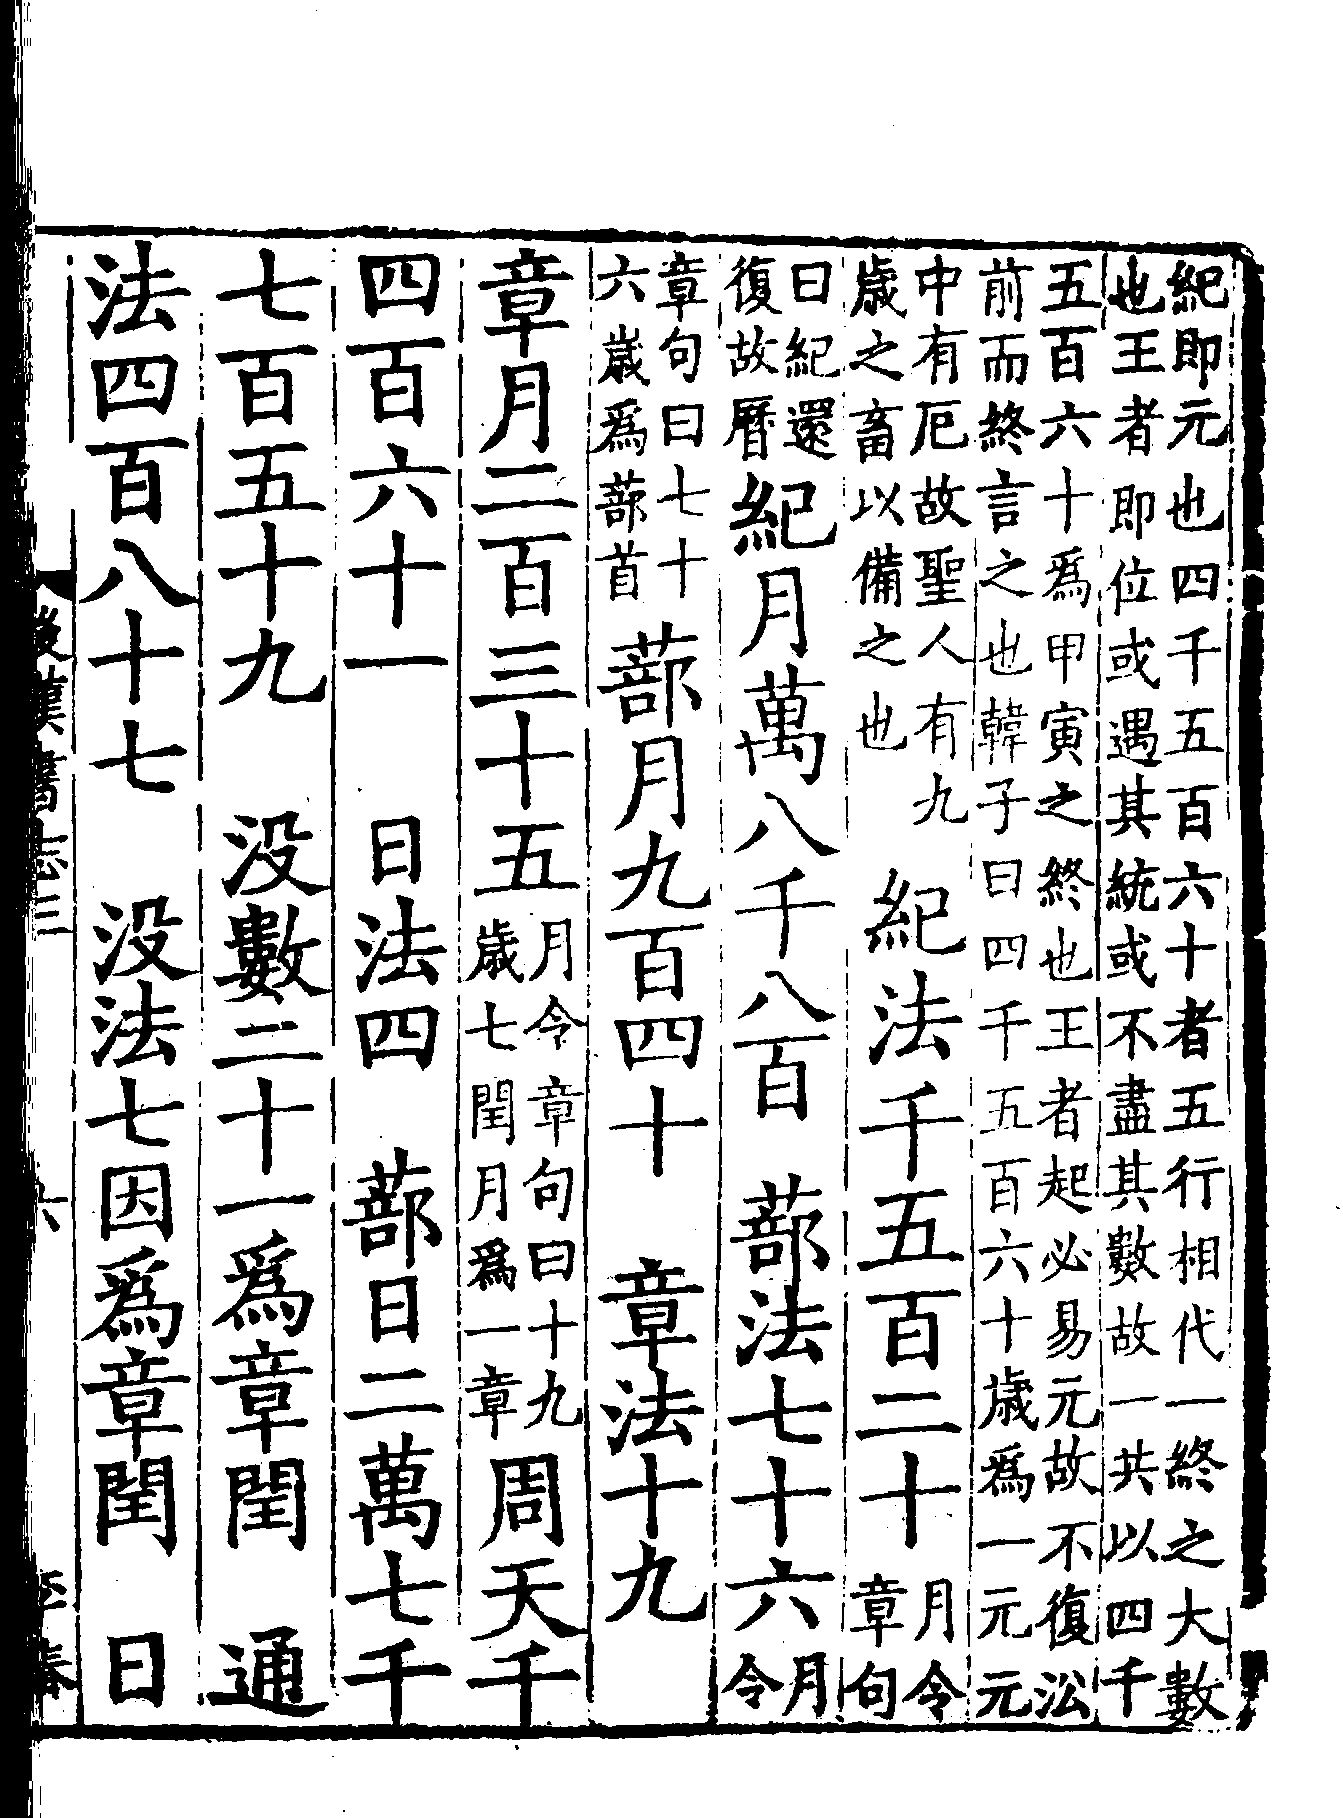 紀即元也四千五百六十者五行相代一終之大數
也王者即位或遇其統或不盡其數故一共以四千
五百六十爲甲寅之終終也王者起必易元故不復㳂
前而終言之也韓子曰四千五百六十歲爲一元元
中有厄故聖人有九
歲之畜以備之也
紀法千五百二十
月令
章句
曰紀還
復故曆
紀月萬八千八百 蔀法七十六
月
令
章句曰七十
六歲爲蔀首
蔀月九百四十 章法十九
章月二百三十五
月令章句曰十九
歲七閏月爲一章
周天千
四百六十一 日法四 蔀日二萬七千
七百五十九 没數二十一爲章閏 通
法四百八十七 没法七因爲章閏 日
後漢書志三
六